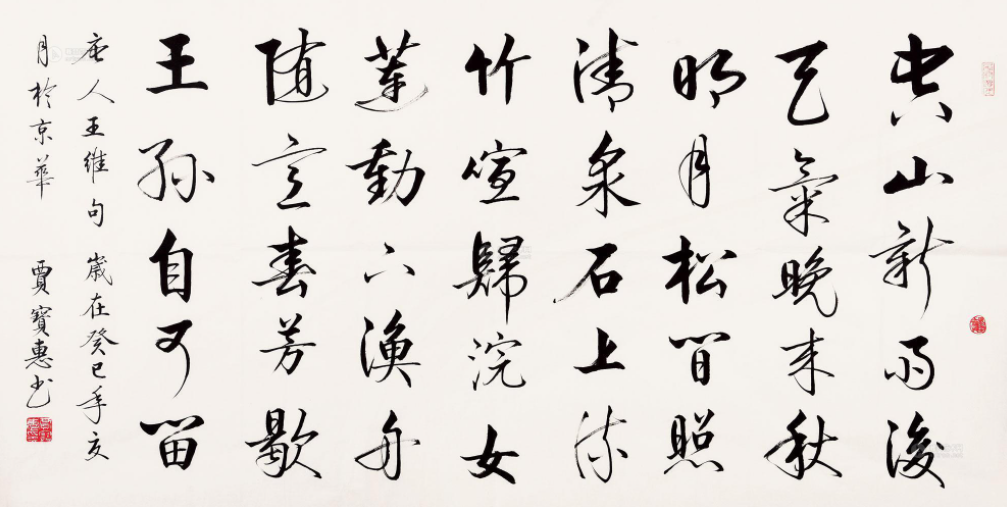 空山新雨後
天氣晚来秋
明月松間照
清泉石上流
竹喧歸浣女
蓮動下漁舟
随意春芳歇
王孫自可留
唐人王維句 歲在癸巳年亥
月於京華 賈寶惠书